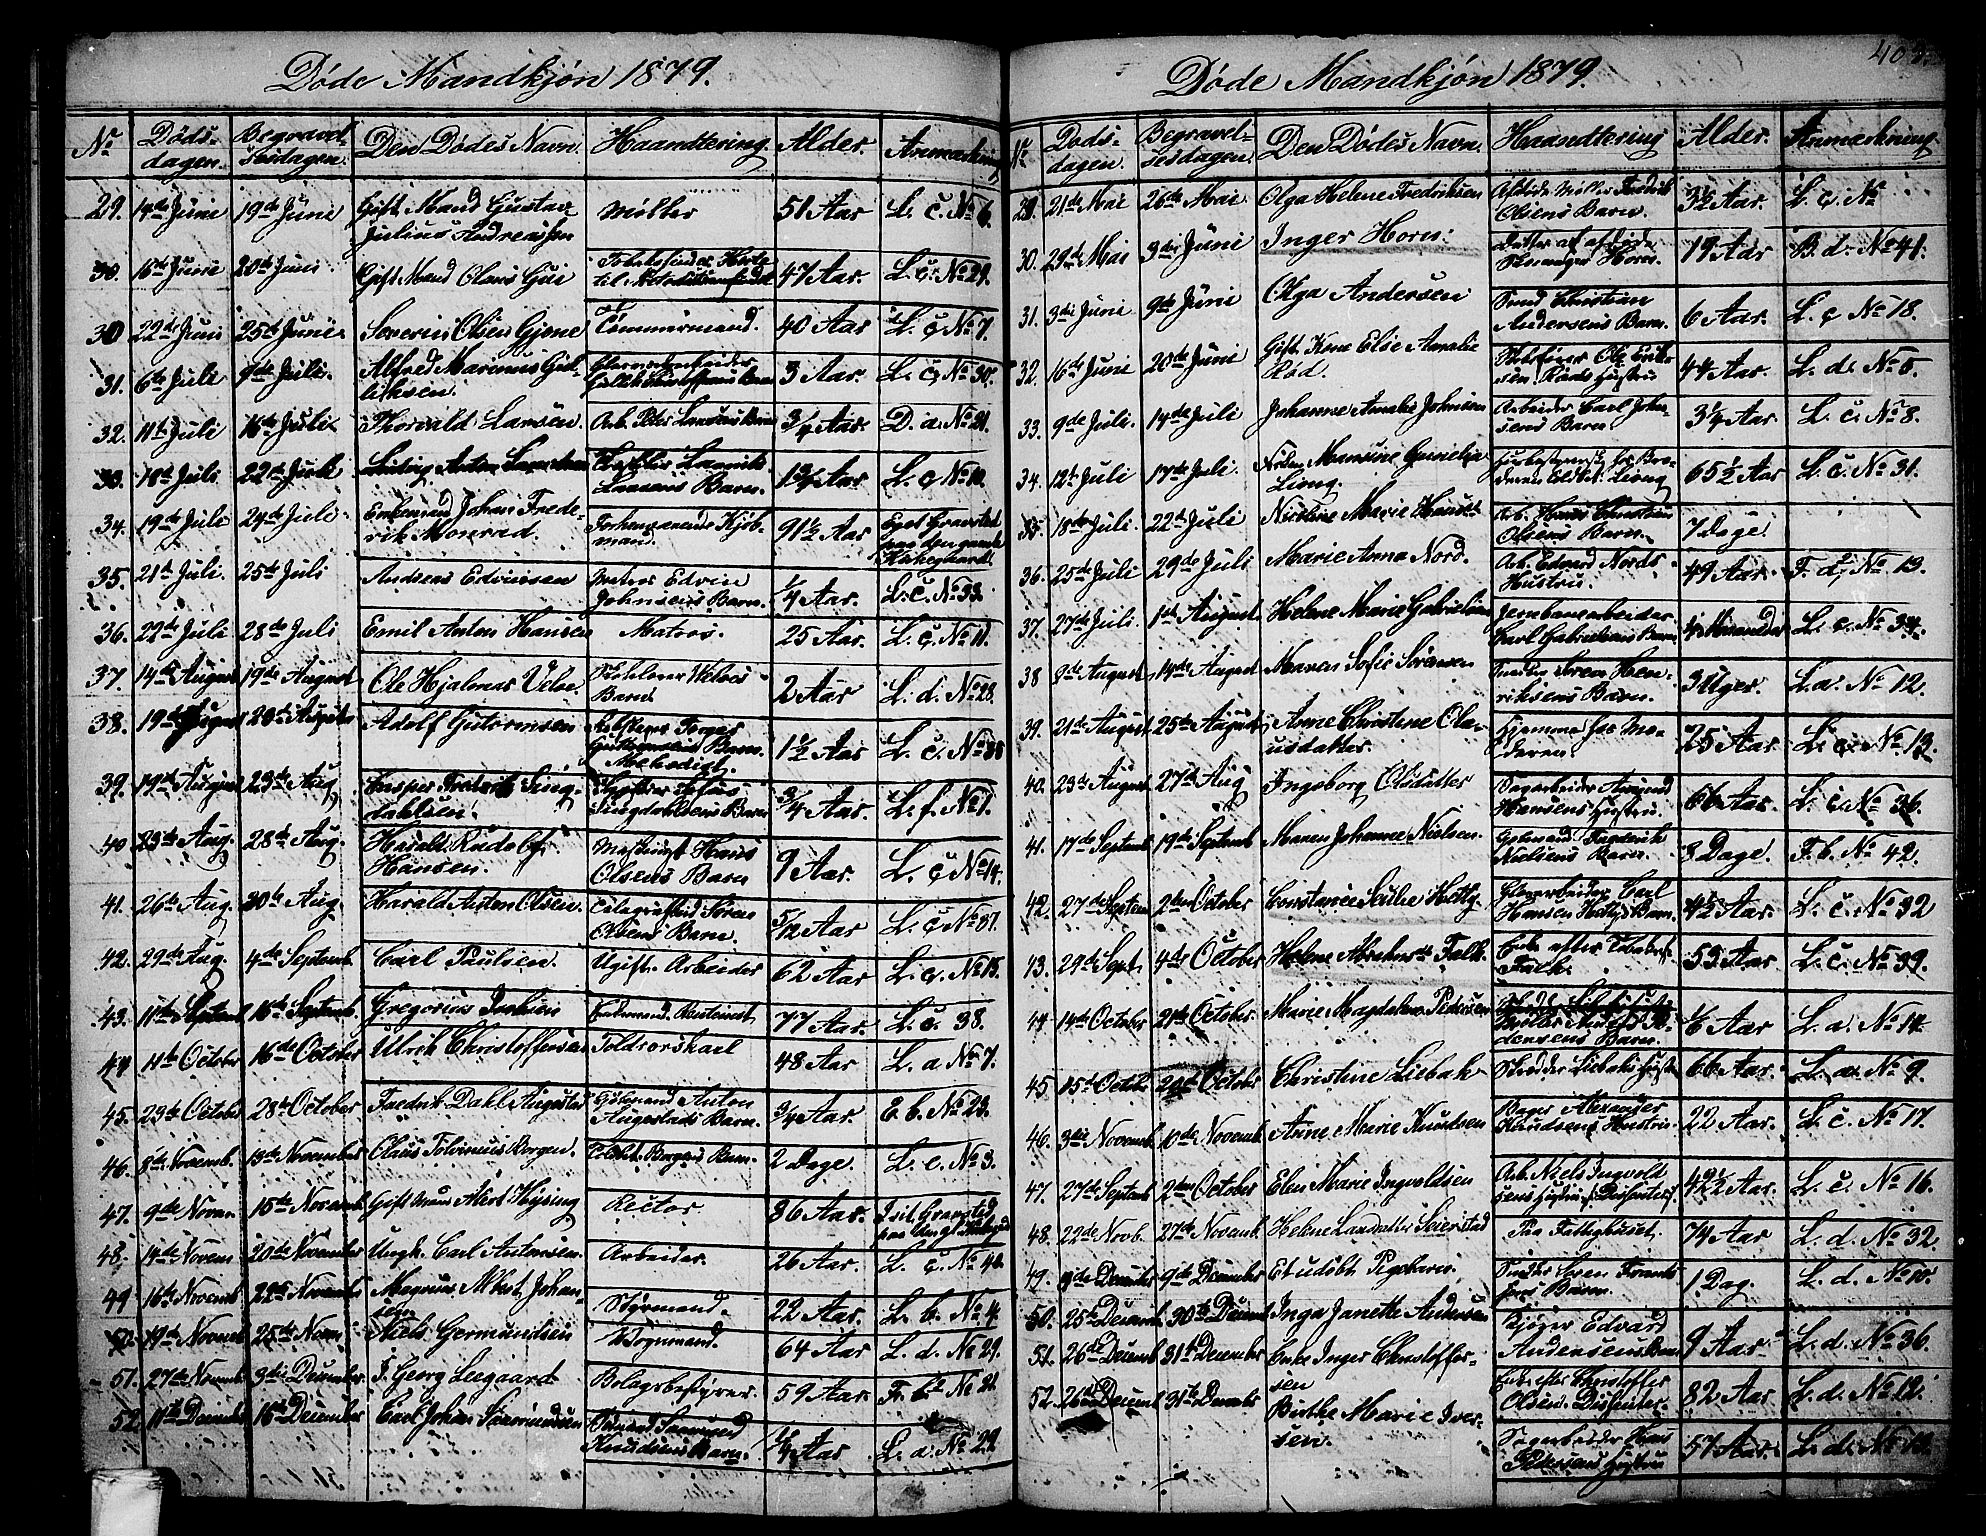 Døde Mandkjøn 1879.
No Døds-dagen. Begravel-sesdagen. Den Dødes Navn. Haandtering. Alder. Anmærkning
29. 14de Juni 19de Juni Gift Mand Gustav Julius Andreassen Møller 51 Aar L. c. No 6.
30. 16de Juni 20de Juni Gift Mand Olaus Gui 47 Aar L. c. No 29.
30 22de Juni 25de Juni Severin Olsen Gjene Tømmermand. 40 Aar L. c No 7.
31. 6te Juli 9de Juli. Alfred Marinius Gulliksen. 3 Aar. L. c No 30.
32. 11te Juli 16de Juli Thorvald Larsen. Arb. Peter Larsens Barn 3/4 Aar. D. a. No 21.
33. 18de Juli 22de Juli L. c No 10.
34. 19de Juli 24de Juli Johan Frederik Monrad. Forhenværende Kjøbmand. 91 1/2 Aar
35. 21de Juli. 25de Juli Andreas Edvinsen Matros Edvin Johnsens Barn. 1/4 Aar. L. c. No 33.
36. 22de Juli 28de Juli Emil Anton Hansen Matros. 25 Aar. L. c. No 11.
37. 14de August 19de August Ole Hjalmar Veloe. Barn 2 Aar L. d. No 28.
38. 19de August Adolf Gutormsen Gutormsens Barn. Methodist. 1 1/2 Aar L. c. No 38
39. 19de August 23de Aug. Casper Fredrik Ljungdahlsen. Ljungdahlsens Barn 3/4 Aar. L. f. No 1.
40 23de Aug. 28de Aug. Harald Rudolf Hansen. Hans Olsens Barn 9 Aar. L. c No 14.
41. 26de Aug. 30de Aug. Harald Anton Olsen. Olsens Barn. 5/12 Aar L. c No 37.
42. 29de Aug. 4de Septemb. Carl Paulsen. Ugift. Arbeider 62 Aar L. c. No 15.
43. 11te Septemb 16de Septemb. Gregorius 77 Aar. L. c. 38.
44 11te October 16de October Ulrik Christoffersen Toldrorskarl 48 Aar L. a No 7.
45. 23de Octobr 28de October Fredrik Dahl Augestad Anton Augestads Barn. 3/4 Aar E. b. No 23.
46. 8de Novemb. 13de November Olaus Tolvinius Borgen. Barn. 2 Dage. L. e. No 3.
47. 9de Novem. 15de Novemb Gift Mand Albert Hysing Rector 86 Aar.
48. 14de Novem 20de November Ungk. Carl Antonsen. Arbeider. 26 Aar. L. c. No 40
49 16de Novemb 22de Novemb Magnus Albert Johansen Styrmand. 22 Aar. L. b. No 4.
50. 19de Novemb 25de Novm Niels Germundsen Vognmand. 64 Aar L. d. No 29.
51. 27de Novemb 3die December J. Georg Leegaard Belagsbestyrer. 59 Aar. F. b No 21.
52 11te Decembr 16de December Carl Johan Knudsens Barn. 1/4 Aar L. a. No 29.
409.
Døde Mandkjøn 1879.
No Døds-dagen. Begravel-sesdagen. Den Dødes Navn. Haandtering Alder. Anmærkning.
29. 21de Mai 26de Mai Olga Helene Fredriksen Olsens Barn. 3 1/2 Aar. L. c. No
30. 29de Mai 3die Juni Inger Horn. Datter af 19 Aar B. d. No 41.
31. 3die Juni 9de Juni Olga Andersen Christian Andersens Barn. 6 Aar. L. c No 18.
32. 16de Juni 20de Juni Gift Kone Else Amalie Rød. Ole Eriksen Røds Hustru 44 Aar. L. d. No 5.
33. 9de Juli. 14de Juli Johanne Amalie Johnsen Arbeider Carl Johnsens Barn. 3/4 Aar L. c. No 8.
34. 12te Juli 17de Juli. 65 1/2 Aar L. c. No 31.
35. 18de Juli. 22de Juli Nicoline Marie Arb. Hans Christian Olsens Barn. 7 Dage.
36. 25de Juli 29de Juli Marie Anna Nord. Arb. Edvard Nords Hustru. 49 Aar. F. d. No 13.
37. 27de Juli 1ste August Helene Marie Gabrielsen Jernbanearbeider Carl Gabrielsens Barn 4 Maaneder L. c. No 34.
38 8de August 14de August Maren Sofie Sørensen Søren Henriksens Barn. 3 Uger. L. a. No 12.
39. 21de August 25de August Anne Christine Olausdatter. Hjemme hos Moderen 25 Aar. L. c. No 13.
40. 23de August 27de Aug Ingeborg Olsdatter Dagarbeider Amund Hansens Hustru. 66 Aar. L. c No 36.
41. 17de Septemb 19de Septemb Maren Johanne Nielsen. Nielsens Barn 3 Dage. F. b. No 42.
42. 27de Septem 2den October Constance Julie Hetty Carl Hansen Hettys Barn. 4 1/2 Aar. L. c. No 32
43. 29de Sept. 4de October Helene Falk. Enke efter Falk. 53 Aar L. c. No 39.
44 14de October 21de October. Marie Magdalena Pedersen Pedersens Barn. 1/2 Aar L. a. No 14.
45 15de Octobr 20de October Christine Liebak Skræder Liebaks Hustru 66 Aar. L. a. No 9.
46. 3die Novemb. 10de Novemb. Anne Marie Knudsen Bager Alexander Knudsens Hustru 22 Aar. L. c No 17.
47. 27de Septemb 2den October Elen Marie Ingvoldsen Arb. Niels Ingvoldsens Hustru (Dissenter) 42 1/2 Aar. L. c. No 16.
48. 22de Novb. 27de Novemb. Helene Paa Fattighuset. 74 Aar L. d. No 32.
49. 9de December Et udøbt Pigebarn. Barn. 1 Dag. L. d. No 10.
50. 25de Decemb 30te Decemb Inga Janette Andersen Kjøger Edvard Andersens Barn 9 Aar. L. d. No 36.
51. 26de Decemb 31te December Enke Inger Christoffersen Enke efter Christoffer Olsen. Dissenter. 82 Aar L. d. No 12.
52. 26de Decemb 31te Decembr Birthe Marie Iversen. Dagarbeider Hans Pedersens Hustru 57 Aar. L. d. No 13.